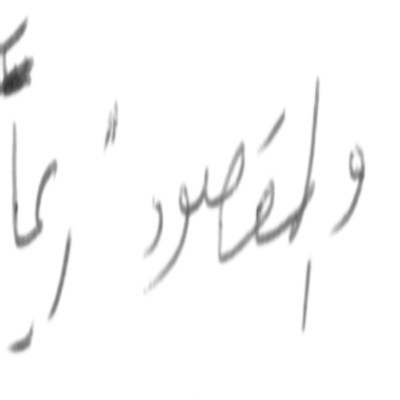 والمقصود " ربما